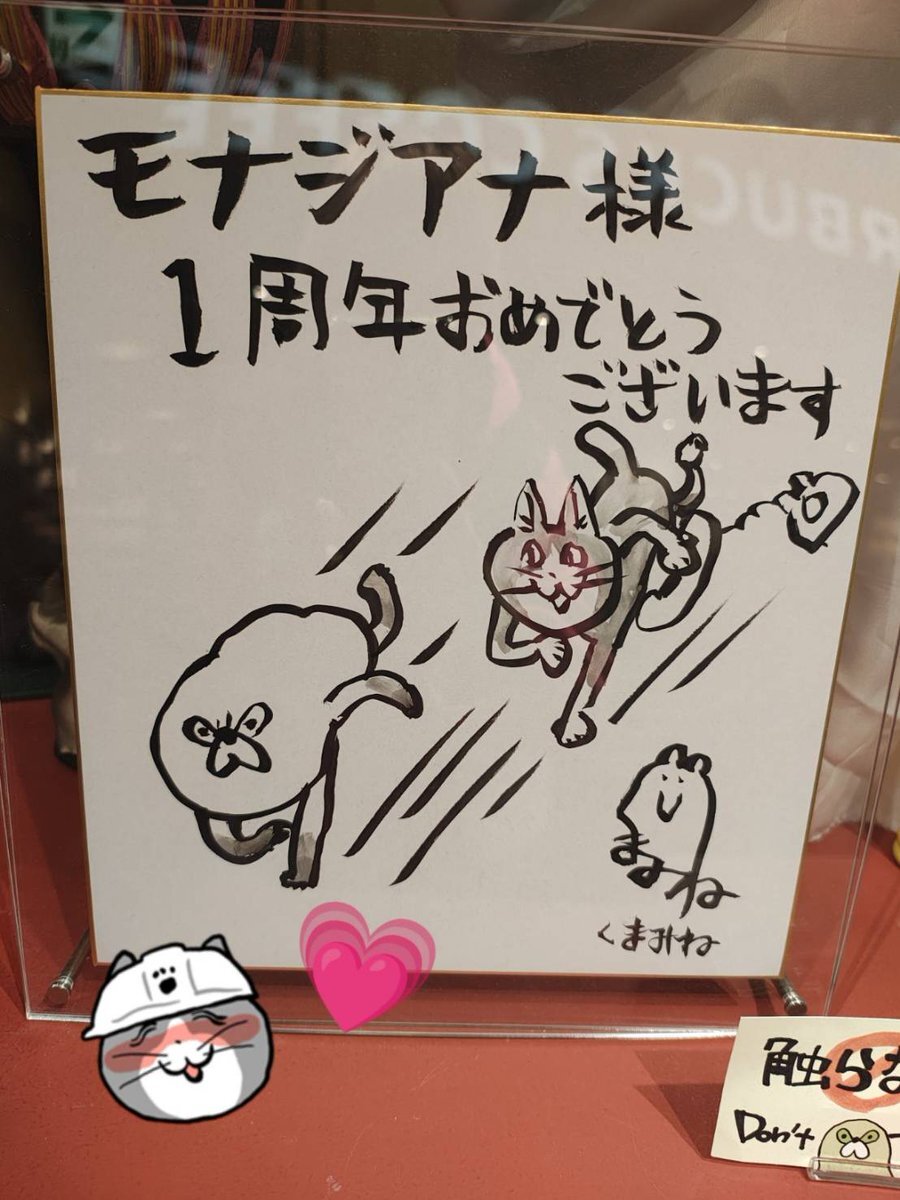 モナジアナ様
1周年おめでとう
ございます
まみね
くまみね
触らな
Don't